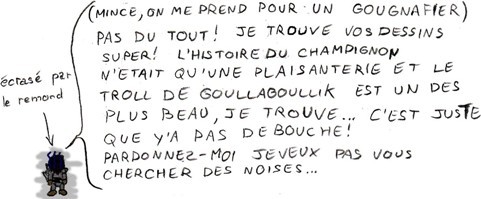 (MINCE, ON ME PREND POUR UN GOUGNAFIER)
PAS DU TOUT! JE TROUVE VOS DESSINS
SUPER! L'HISTOIRE DU CHAMPIGNON
N'ETAIT QU'UNE PLAISANTERIE ET LE
TROLL DE GOULLAGOULLIK EST UN DES
PLUS BEAU, JE TROUVE... C'EST JUSTE
QUE Y'A PAS DE BOUCHE!
PARDONNEZ-MOI JE VEUX PAS VOUS
CHERCHER DES NOISES...
écrasé par
le remord